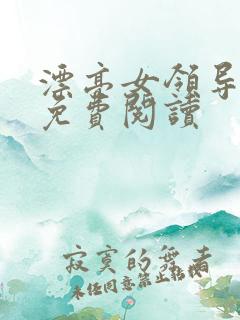 漂亮女領导
免費閱讀
寂寞的舞者
未经同意禁止转载